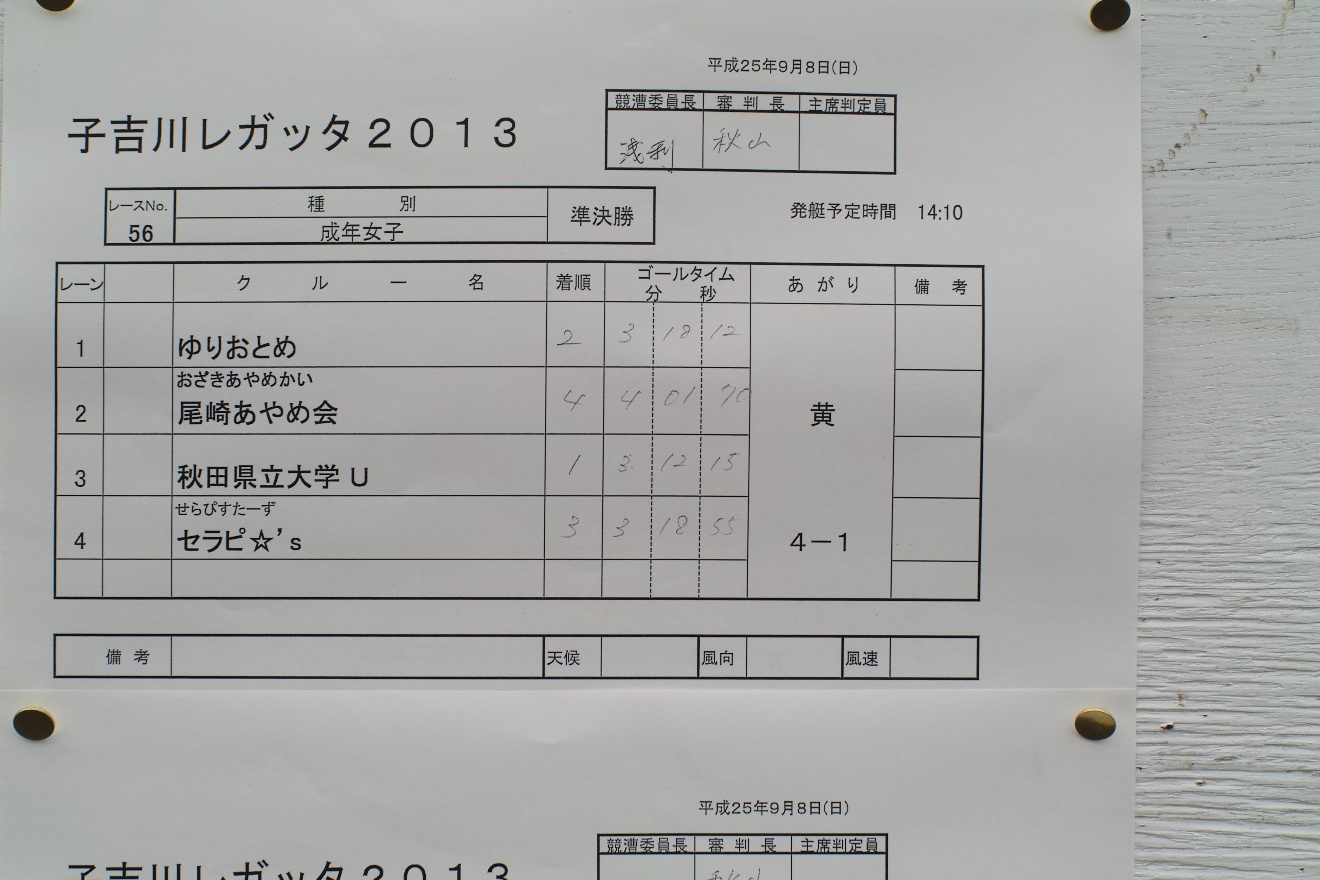 平成25年9月8日(日)
子吉川レガッタ2013
競漕委員長 審判長 主席判定員
浅利 秋山
レースNo. 種別 準決勝
56 成年女子
発艇予定時間 14:10
レーン クルー名 着順 ゴールタイム あがり 備考
分 秒
1 ゆりおとめ 2 3 18 12
おざきあやめかい
2 尾崎あやめ会 4 4 01 70 黄
3 秋田県立大学 U 1 3 12 15
せらぴすたーず
4 セラピ☆'s 3 3 18 55 4-1
備考 天候 風向 風速
平成25年9月8日(日)
競漕委員長 審判長 主席判定員
秋山
子吉川レガッタ2013